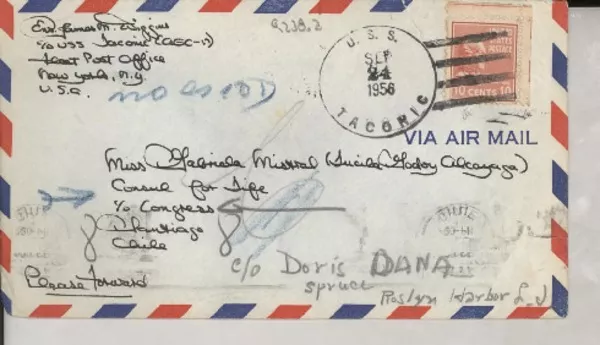 Ens. James M. Wiggins
c/o USS Taconic (AGC-17)
Fleet Post Office
New York, N.Y.
U.S.A.
9,239,2
U. S. S.
SEP
24
1956
TACONIC
STATES
POSTAGE
10 CENTS 10
VIA AIR MAIL
Miss Gabriela Mistral (Lucila Godoy Alcayaga)
Consul for Life
c/o Congress
Santiago
Chile
Please Forward
c/o Doris DANA
Spruce
Roslyn Harbor L-I